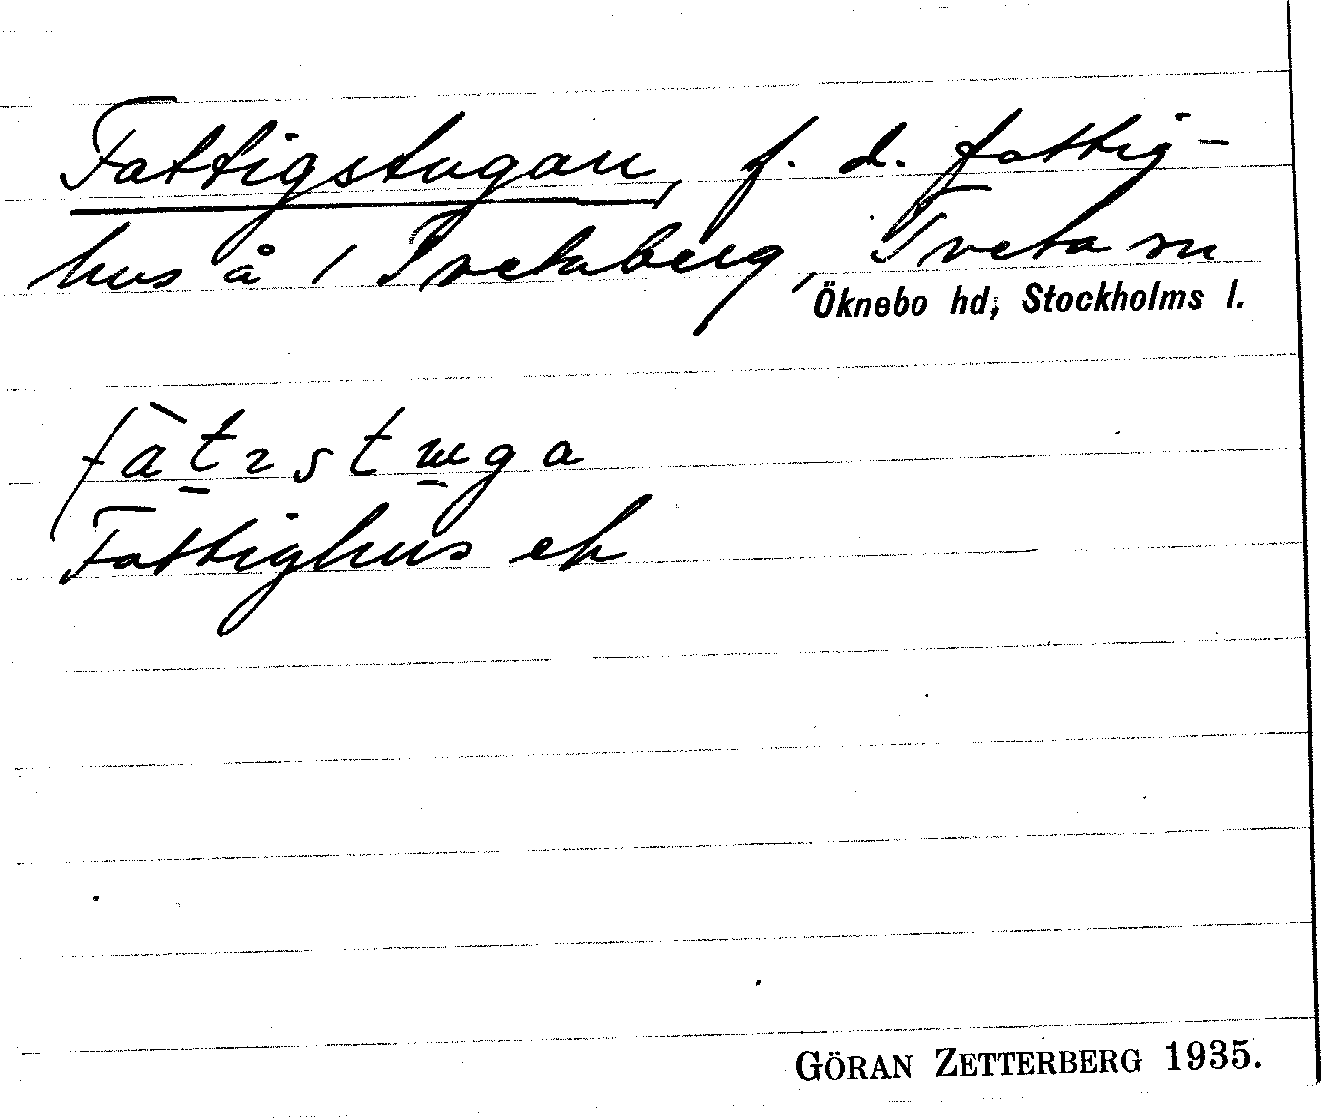 Fattigstugan, f. d. fattig-
hus å 1 Tvetaberg, Tveta sn
Öknebo hd, Stockholms l.
fàtɪstɯga
Fattighus ek
GÖRAN ZETTERBERG 1935.